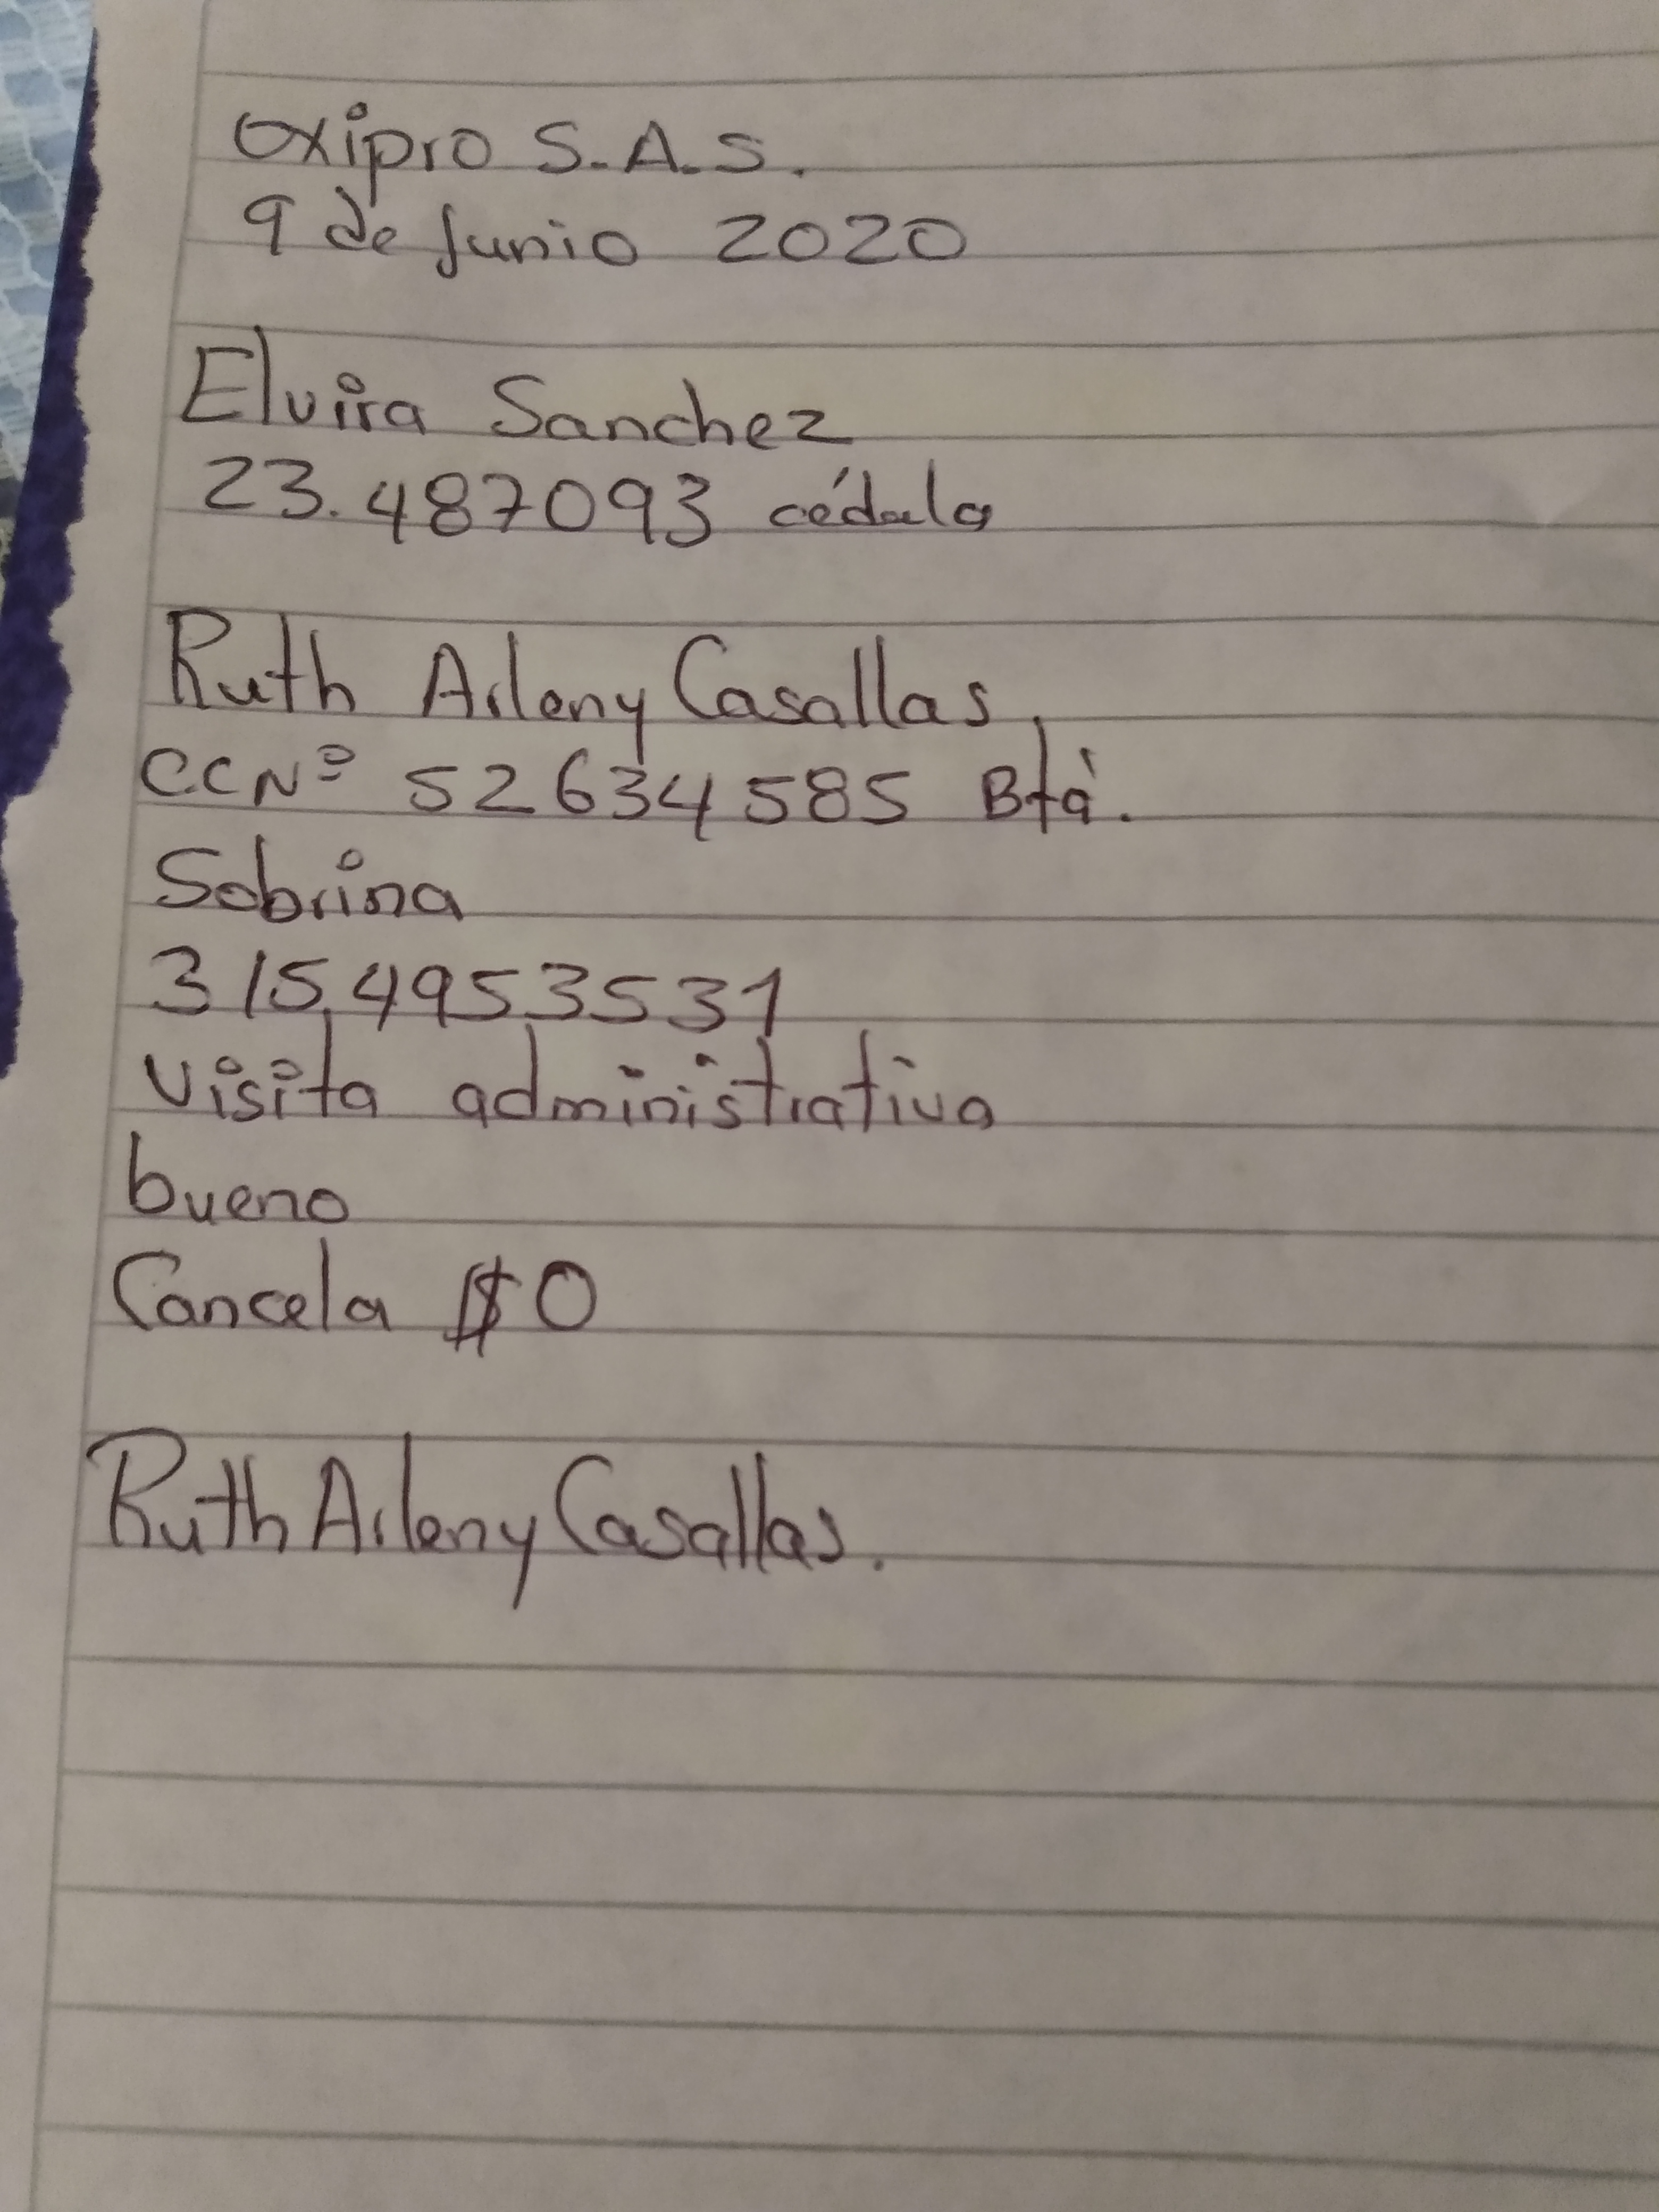 Oxipro S.A.S.
9 de Junio 2020
Elvira Sanchez
23.487093 cédula
Ruth Arleny Casallas.
CCNº 52634585 Btá.
Sobrina
3154953531
Visita administrativa
bueno
Cancela $0
Ruth Arleny Casallas.